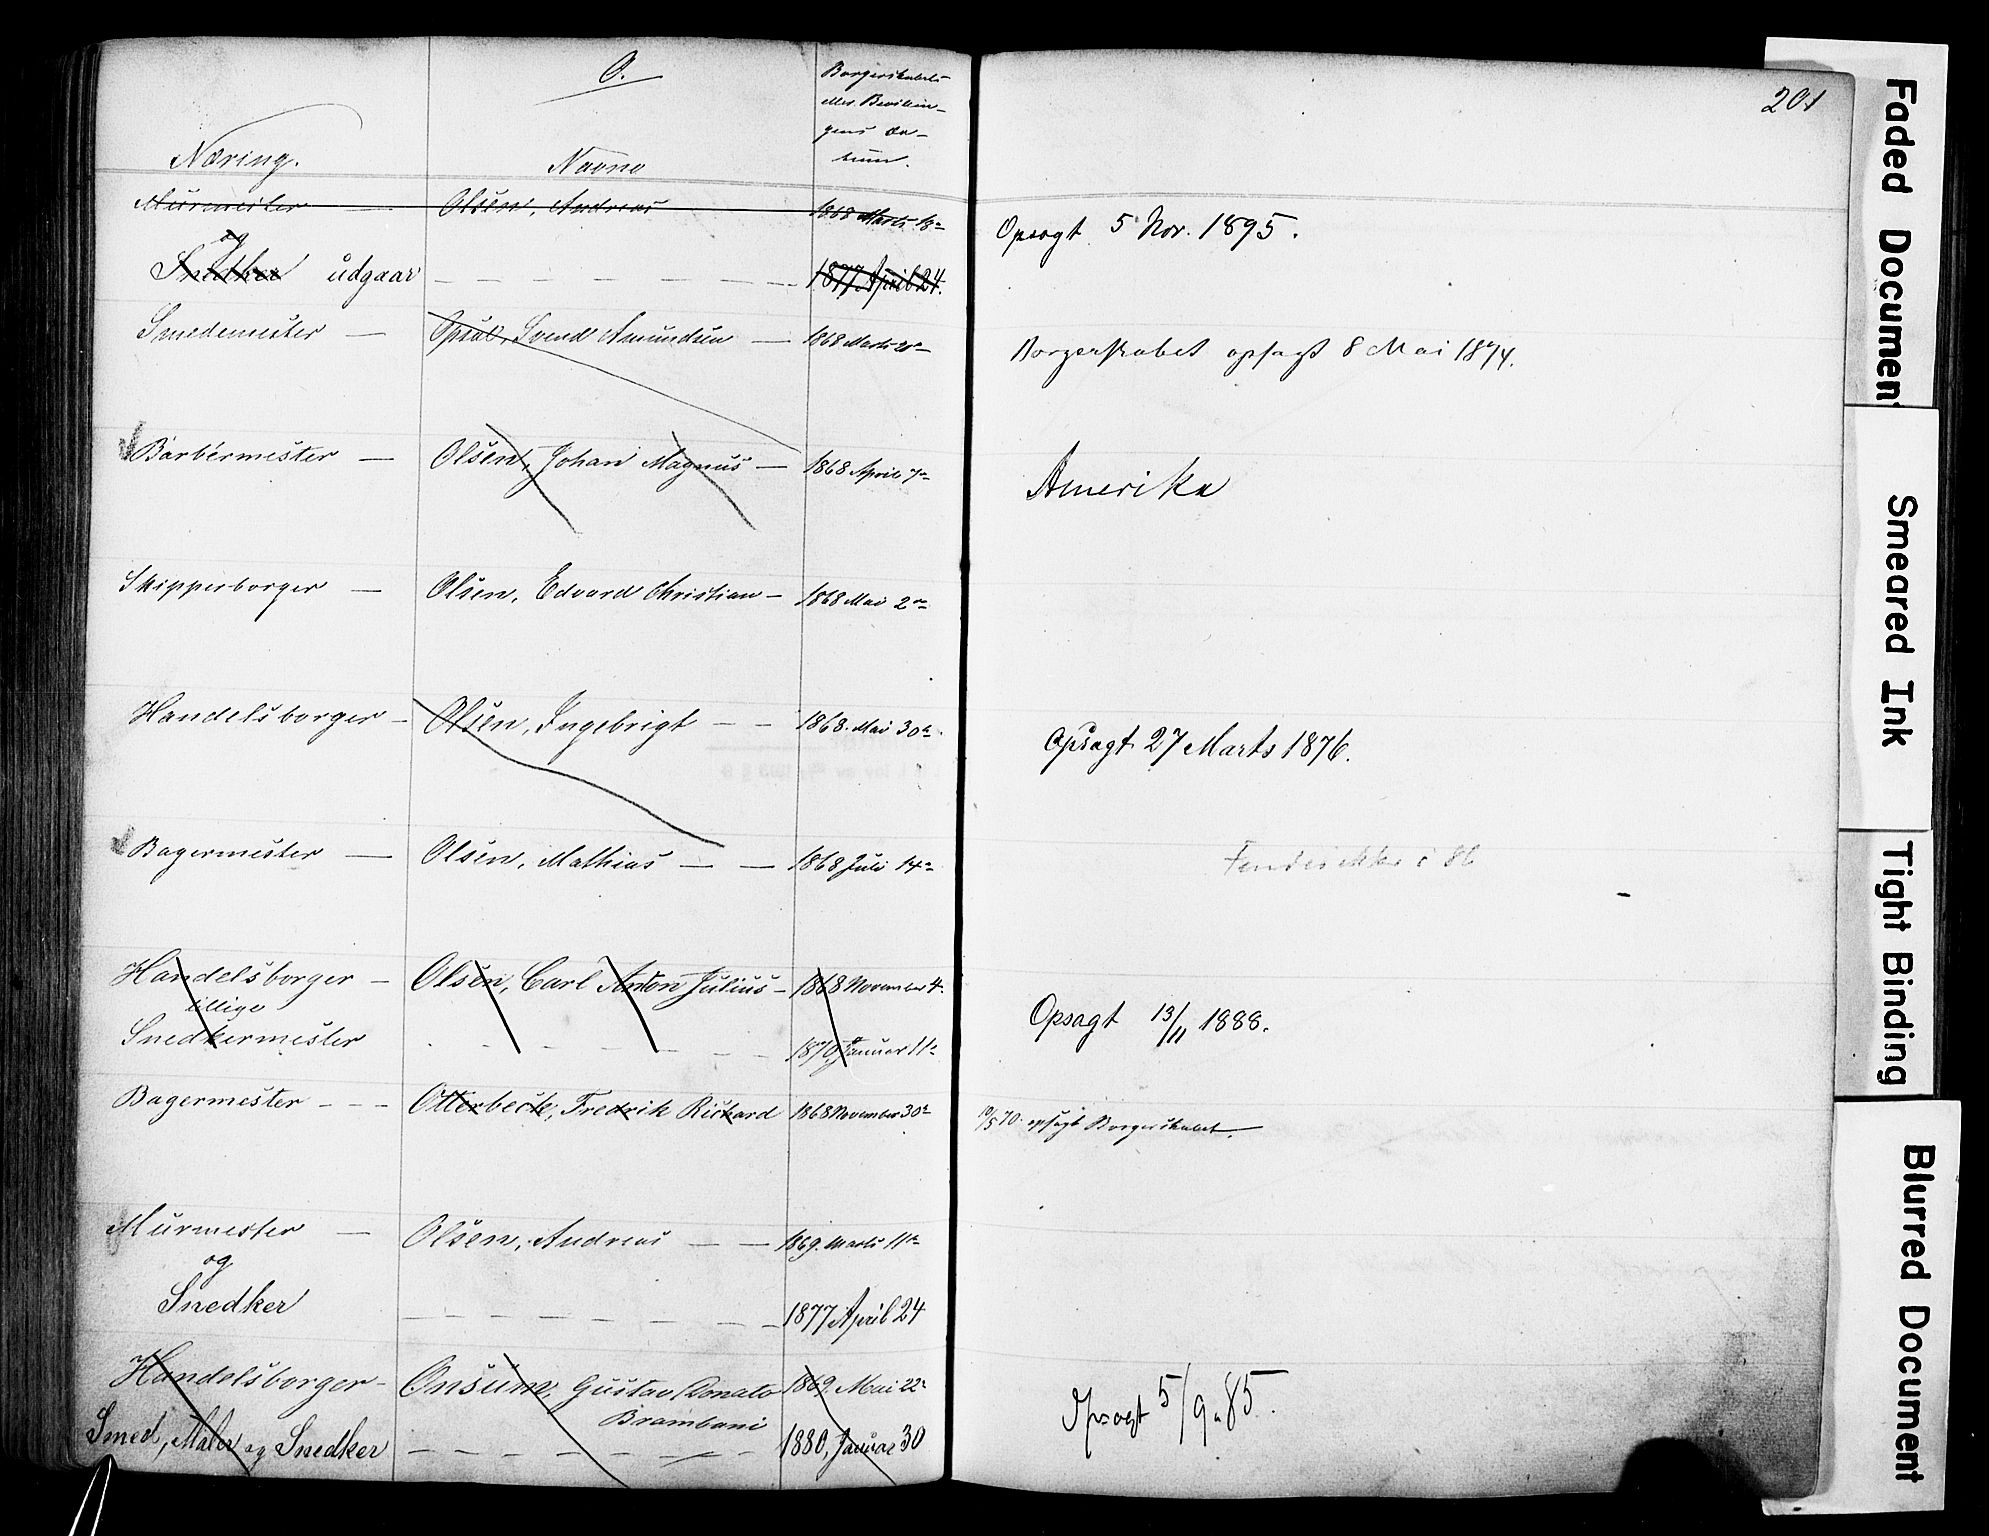 O.
Borgerskabets
eller Bevilin-
gens Da-
tum.
201
Næring. Navne
Murmester — Olsen, Andreas 1868 Marts 18de
Opsagt 5 Nov. 1895.
og
Snedker udgaar — — — — — — 1877 April 24.
Smedemester — Opsal, Svend Amundsen — 1868 Marts
Borgerskabet opsagt 8 Mai 1874.
Barbermester — Olsen, Johan Magnus — 1868 April 7de
Amerika
Skipperborger — Olsen, Edvard Christian — 1868 Mai 2den
Handelsborger — Olsen, Ingebrigt — — 1868. Mai 30te
Opsagt 27 Marts 1876.
Bagermester — Olsen, Mathias — — 1868 Juli 14de
Findes ikke i 86
Handelsborger — Olsen, Carl Anton Julius — 1868 November 4.
tillige
Opsagt 13/11 1888.
Snedkermester — — — — — — 1870, Januar 11te
Bagermester — — — Otterbeck, Fredrik Richard 1868 November 30te
10/5 70. opsagt Borgerskabet.
Murmester — Olsen, Andreas — — 1869. Marts 11te
og
Snedker — — — — — — — 1877 April 24
Handelsborger — Onsum, Gustav Donato 1869. Mai 22
Brambani
Opsagt 5/9 85.
Smed, Maler og Snedker — — — — — — 1880, Januar 30
Faded Document
Smeared Ink
Tight Binding
Blurred Document